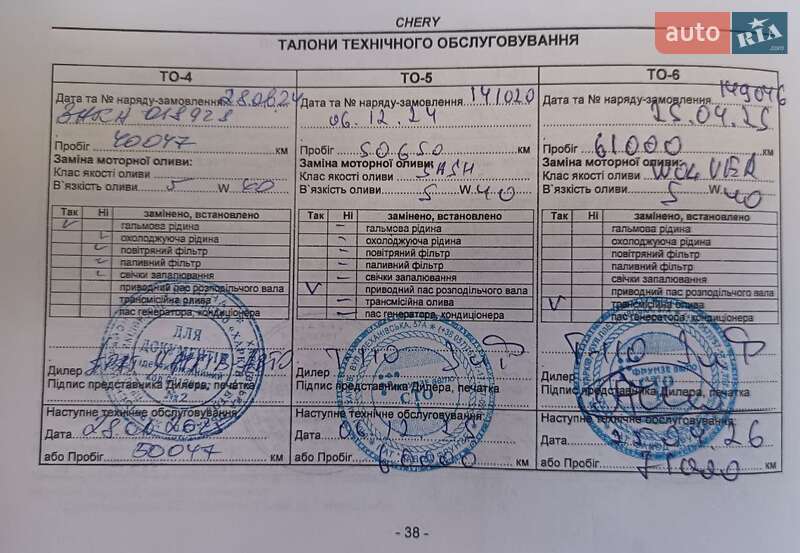 CHERY
auto RIA.com
ТАЛОНИ ТЕХНІЧНОГО ОБСЛУГОВУВАННЯ
ТО-4
Дата та № наряду-замовлення 28.08.24
018928
Пробіг 40047 км
Заміна моторної оливи:
Клас якості оливи
В`язкість оливи 5 W 40
Так Ні замінено, встановлено
гальмова рідина
охолоджуюча рідина
повітряний фільтр
паливний фільтр
свічки запалювання
приводний пас розподільчого вала
трансмісійна олива
пас генератора, кондиціонера
ДЛЯ
Дилер
Підпис представника Дилера, печатка
№2
Наступне технічне обслуговування:
Дата
або Пробіг 50047 км
ТО-5
Дата та № наряду-замовлення 141020
06.12.24
Пробіг 50650 км
Заміна моторної оливи:
Клас якості оливи
В`язкість оливи 5 W 40
Так Ні замінено, встановлено
гальмова рідина
охолоджуюча рідина
повітряний фільтр
паливний фільтр
свічки запалювання
приводний пас розподільчого вала
трансмісійна олива
пас генератора, кондиціонера
Дилер
СТО
Підпис представника Дилера, печатка
Наступне технічне обслуговування:
Дата 06.12.25
або Пробіг 60000 км
ТО-6
149046
Дата та № наряду-замовлення
25.04.25
Пробіг 61000 км
Заміна моторної оливи:
Клас якості оливи WOLVER
В`язкість оливи 5 W 40
Так Ні замінено, встановлено
гальмова рідина
охолоджуюча рідина
повітряний фільтр
паливний фільтр
свічки запалювання
приводний пас розподільчого вала
трансмісійна олива
пас генератора, кондиціонера
Дилер
ФРУНЗЕ АВТО
СТО
Підпис представника Дилера, печатка
Наступне технічне обслуговування:
Дата 25.04.26
або Пробіг 71000 км
- 38 -